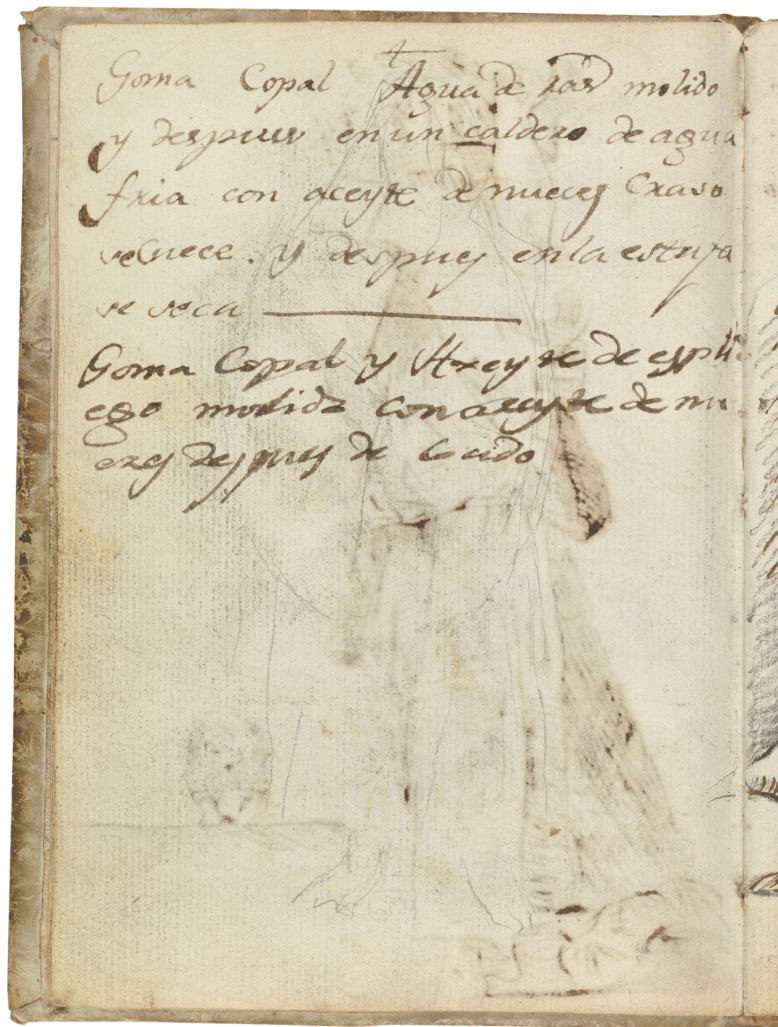 Goma Copal Agua de ras molido
y despues en un caldero de agua
fria con aceyte de nueces Craso
secuece. y despues en la estufa
se seca
Goma Copal y Axeyte de espli
ego molido con aceyte de nu
ezes despues de Cocido